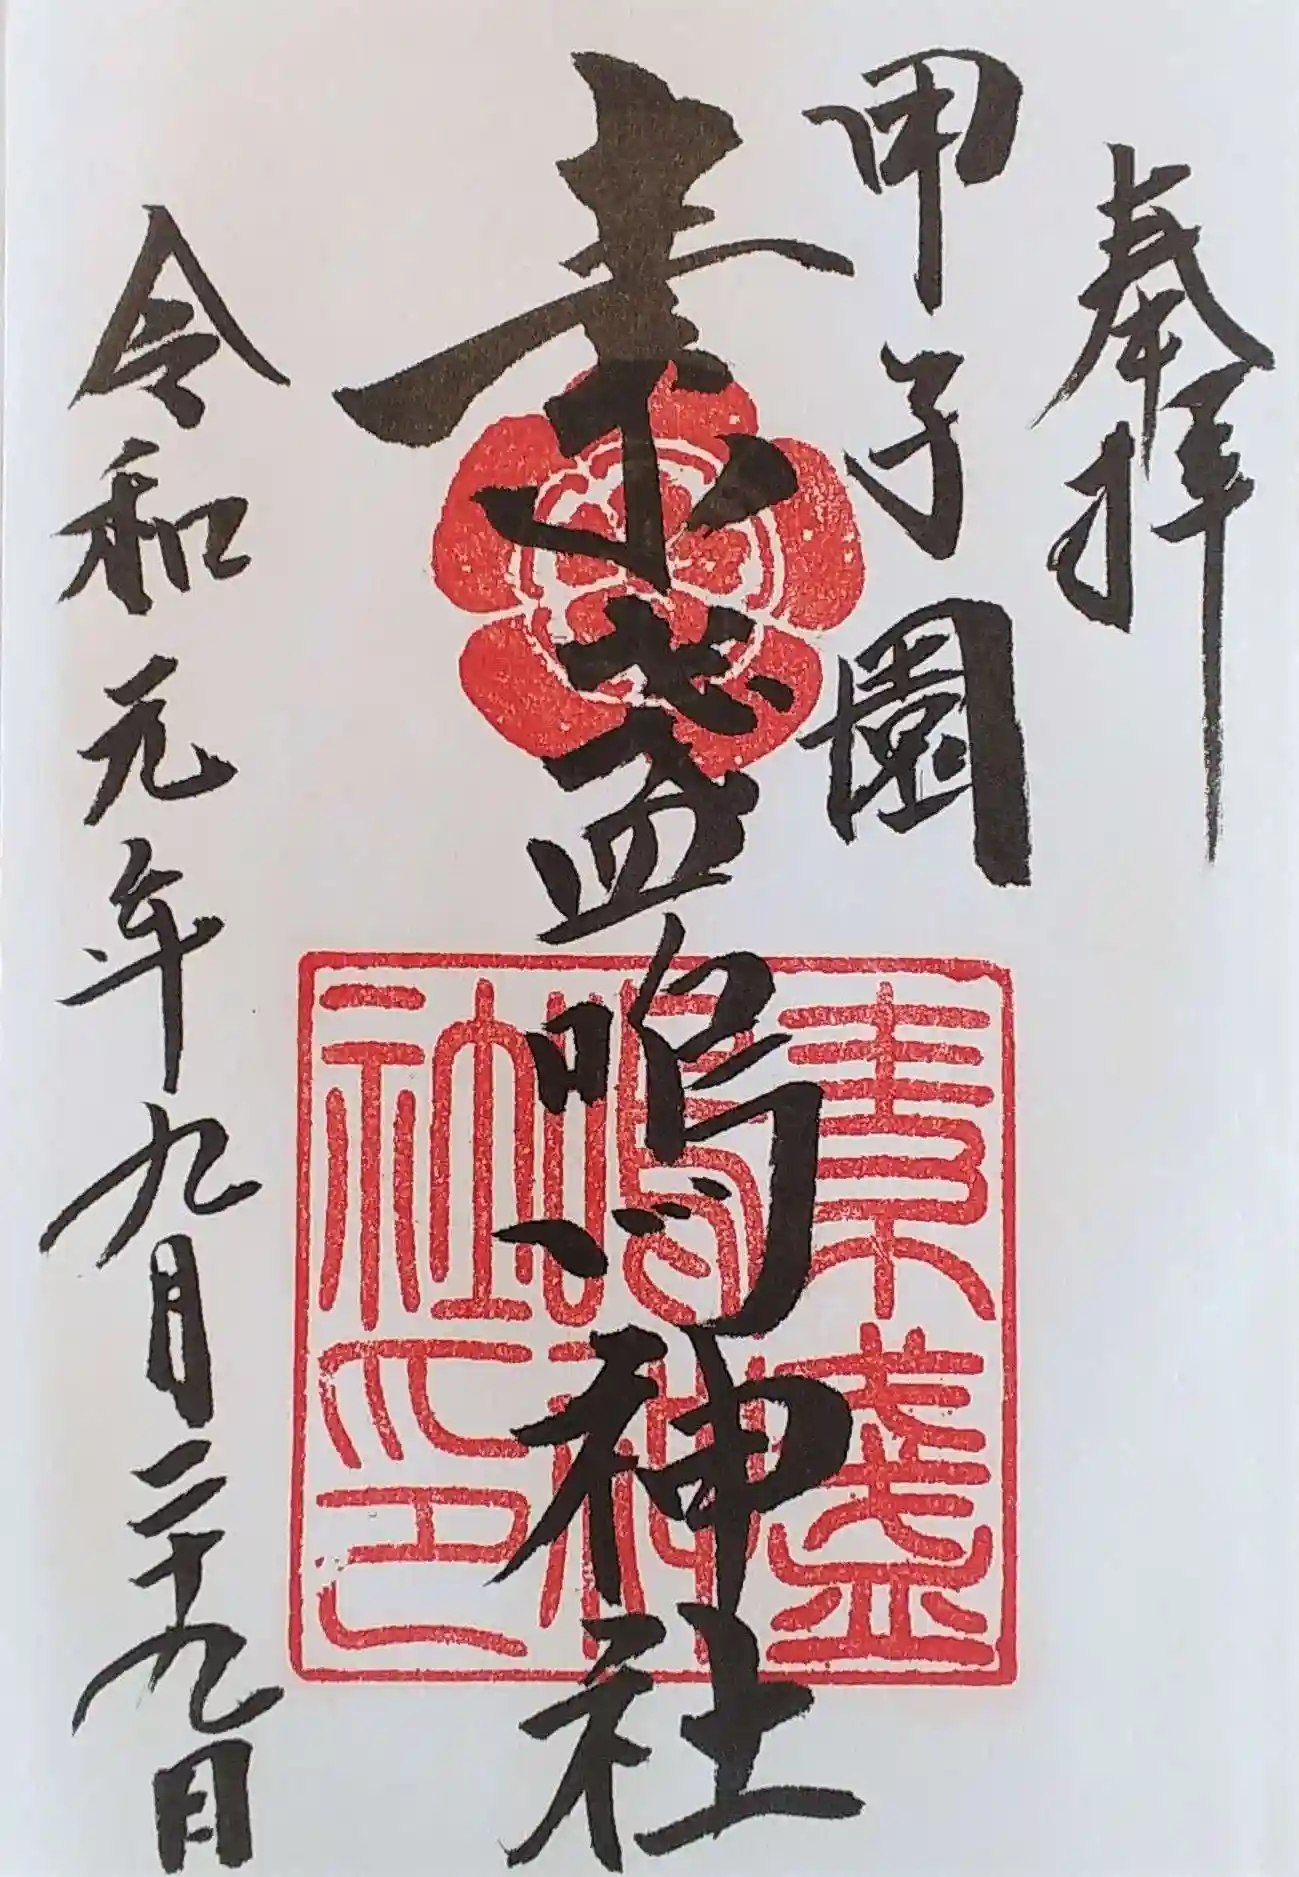 奉拝
甲子園
素盞嗚神社
令和元年九月二十九日
素盞
嗚神
社之印